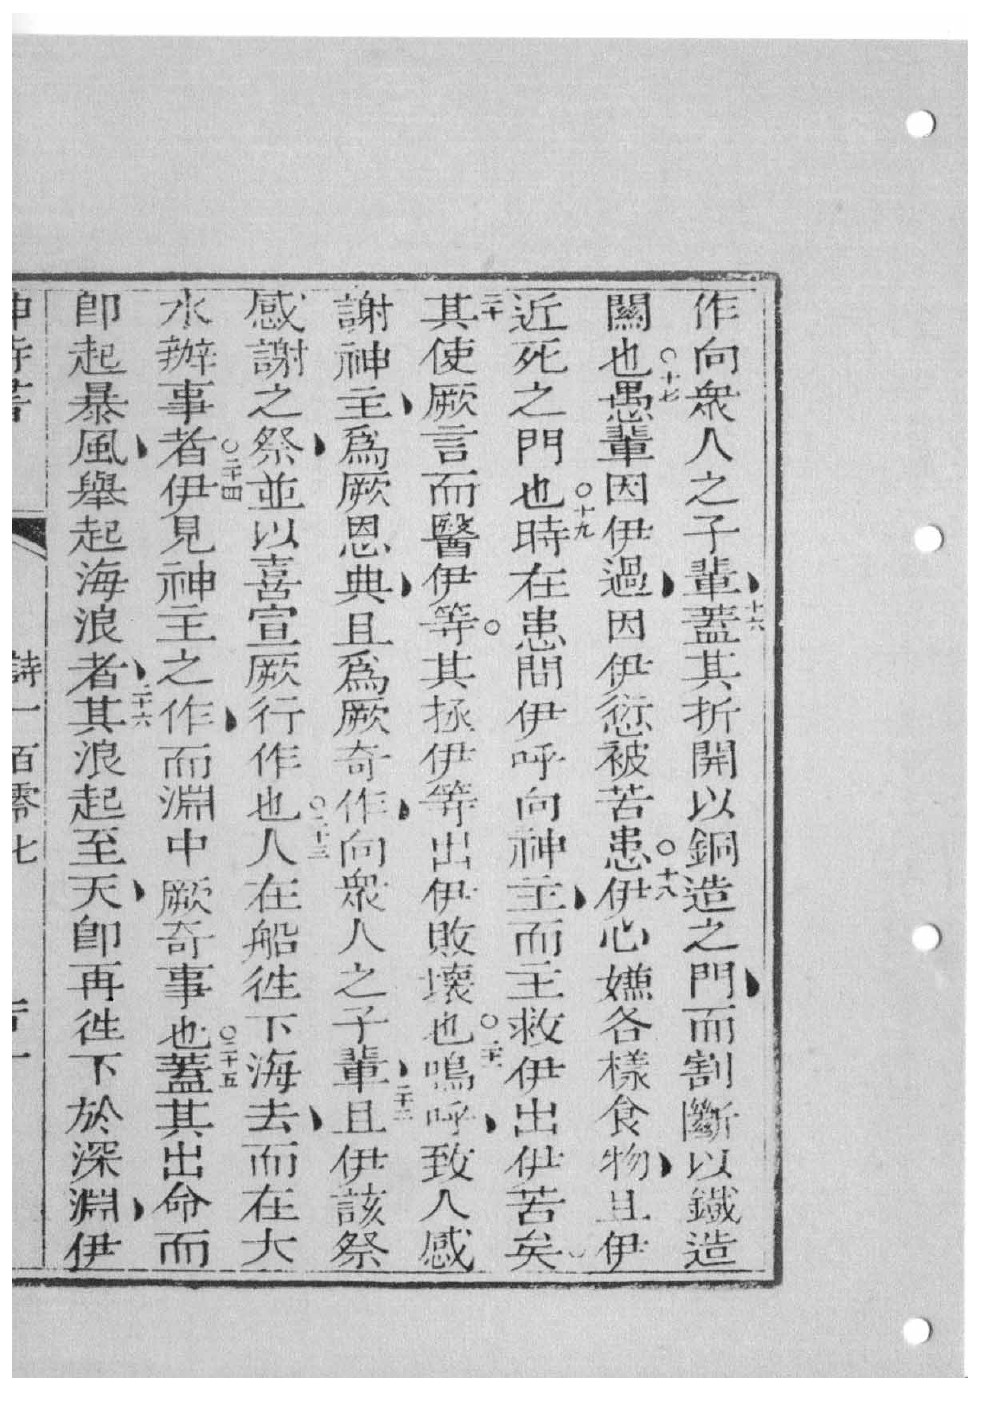 作向衆人之子輩、十六蓋其折開以銅造之門、而割斷以鐵造
關也○十七愚輩因伊過、因伊愆被苦患○十八伊心嫌各樣食物、且伊
近死之門也○十九時在患間伊呼向神主、而主救伊出伊苦矣
二十其使厥言而醫伊等○其拯伊等出伊敗壞也○二十一嗚呼、致人感
謝神主、爲厥恩典、且爲厥奇作、向衆人之子輩、二十二且伊該祭
感謝之祭、並以喜宣厥行作也○二十三人在船徃下海去、而在大
水辦事者○二十四伊見神主之作、而淵中厥奇事也○二十五蓋其出命而
卽起暴風、舉起海浪者、二十六其浪起至天、卽再徃下於深淵、伊
神詩書 詩一百零七